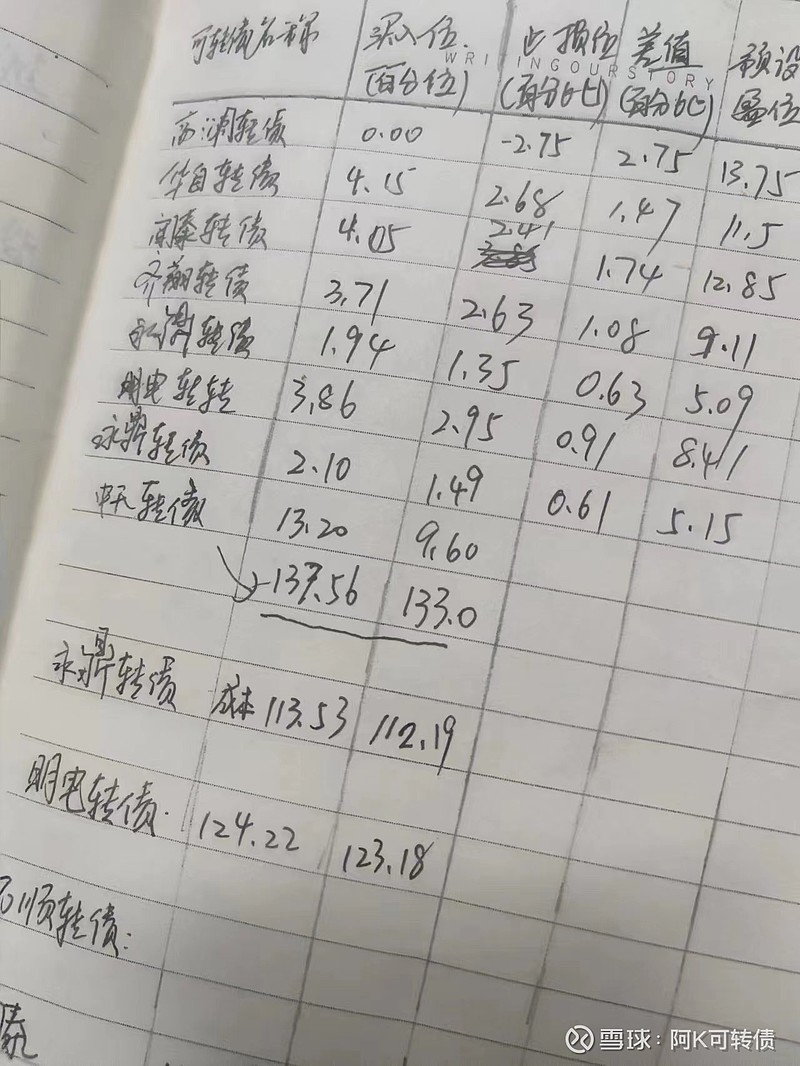 可转债名称 买入位 (百分位) 止损位 (百分比) 差值 (百分比) 预设 盈位
WRITINGOURSTORY
高澜转债 0.00 -2.75 2.75 13.75
华自转债 4.15 2.68 1.47 11.5
转债 4.05 2.41 1.74 12.85
齐翔转债 3.71 2.63 1.08 9.11
永鼎转债 1.94 1.35 0.63 5.09
明电转转 3.86 2.95 0.91 8.41
永鼎转债 2.10 1.49 0.61 5.15
中天转债 13.20 9.60
137.56 133.0
永鼎转债 成本 113.53 112.19
明电转债. 124.22 123.18
顺转债:
雪球：阿K可转债